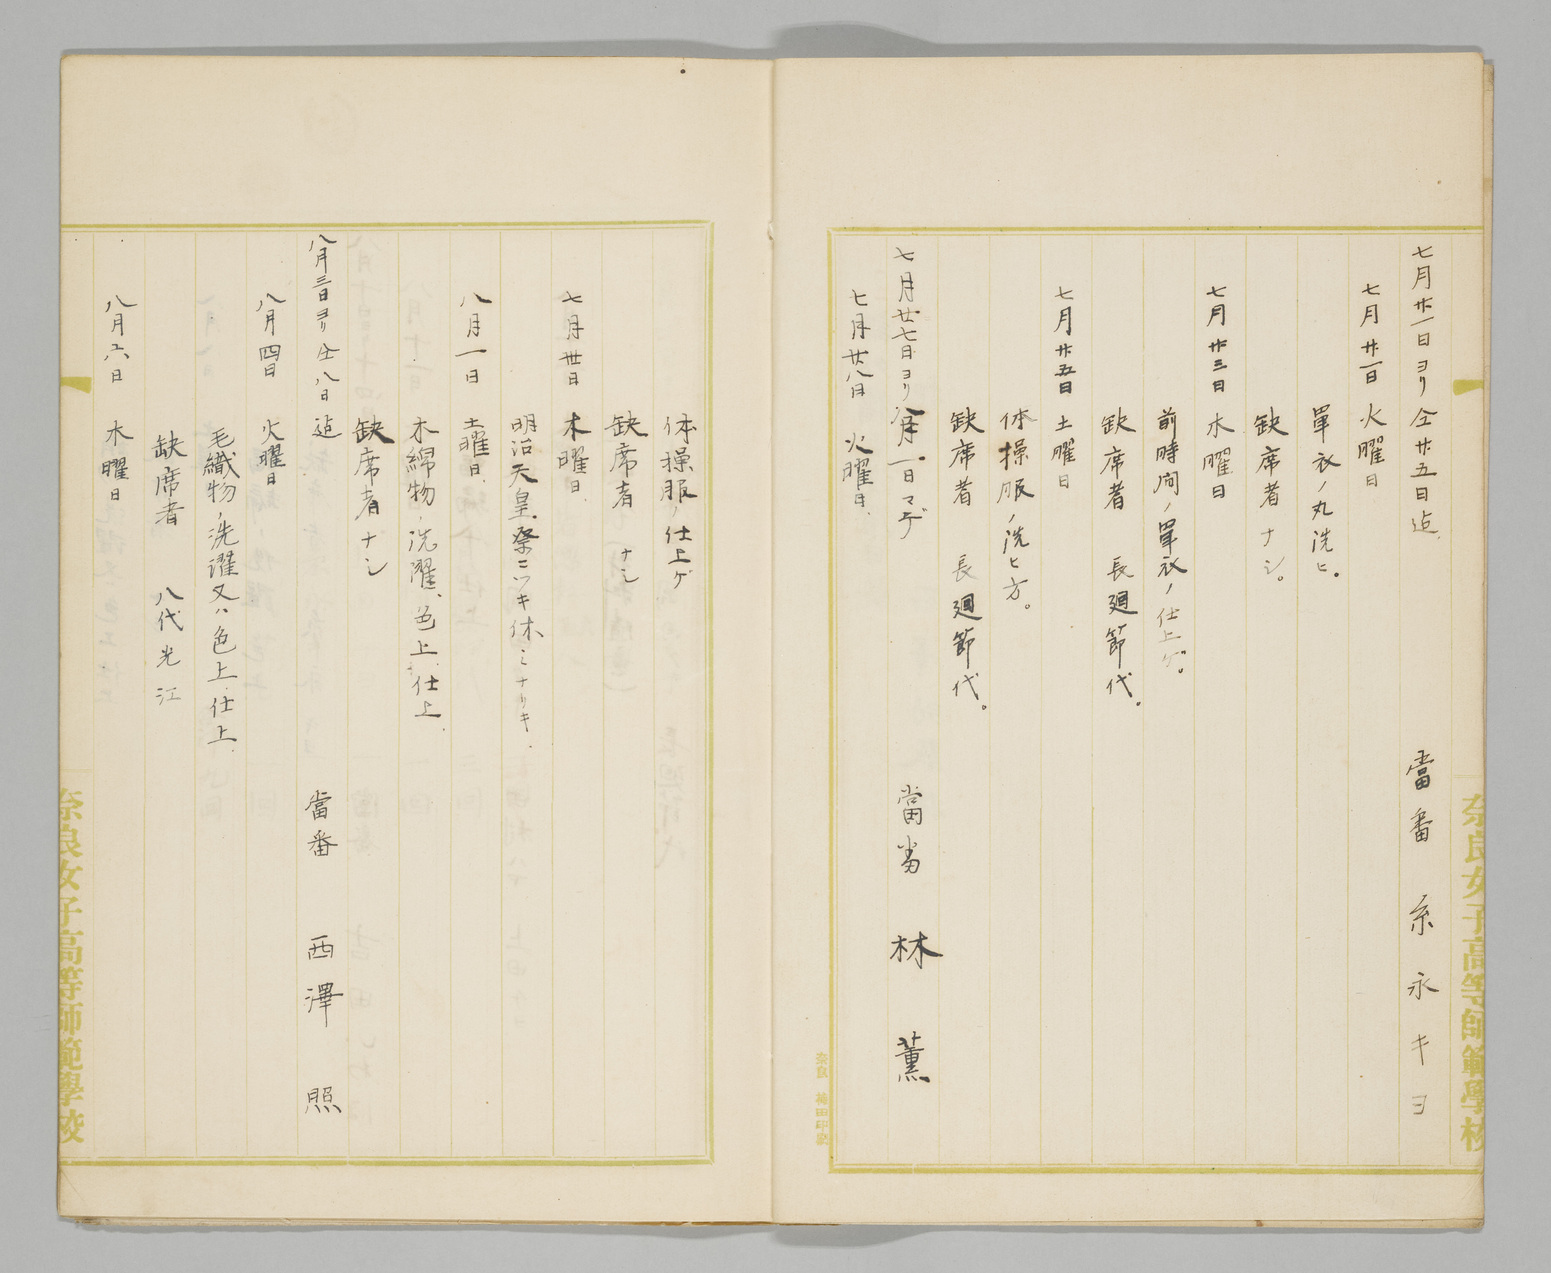 七月廿一日ヨリ仝廿五日迠 當番 系永キヨ
七月廿一日 火曜日
單衣ノ丸洗ヒ。
缺席者ナシ。
七月廿三日 木曜日
前時間ノ單衣ノ仕上ゲ。
缺席者 長廻節代。
七月廿五日 土曜日
体操服ノ洗ヒ方。
缺席者 長廻節代。
七月廿七日ヨリ八月一日マデ 當番 林薫
七月廿八日 火曜日
奈良女子高等師範學校
体操服ノ仕上ゲ
缺席者 ナシ
七月卅日 木曜日
明治天皇祭ニツキ休ミナリキ
八月一日 土曜日
木綿物ノ洗濯、色上、仕上
缺席者ナシ
八月三日ヨリ仝八日迠 當番 西澤照
八月四日 火曜日
毛織物ノ洗濯又ハ色上、仕上
缺席者 八代光江
八月六日 木曜日
奈良女子高等師範學校